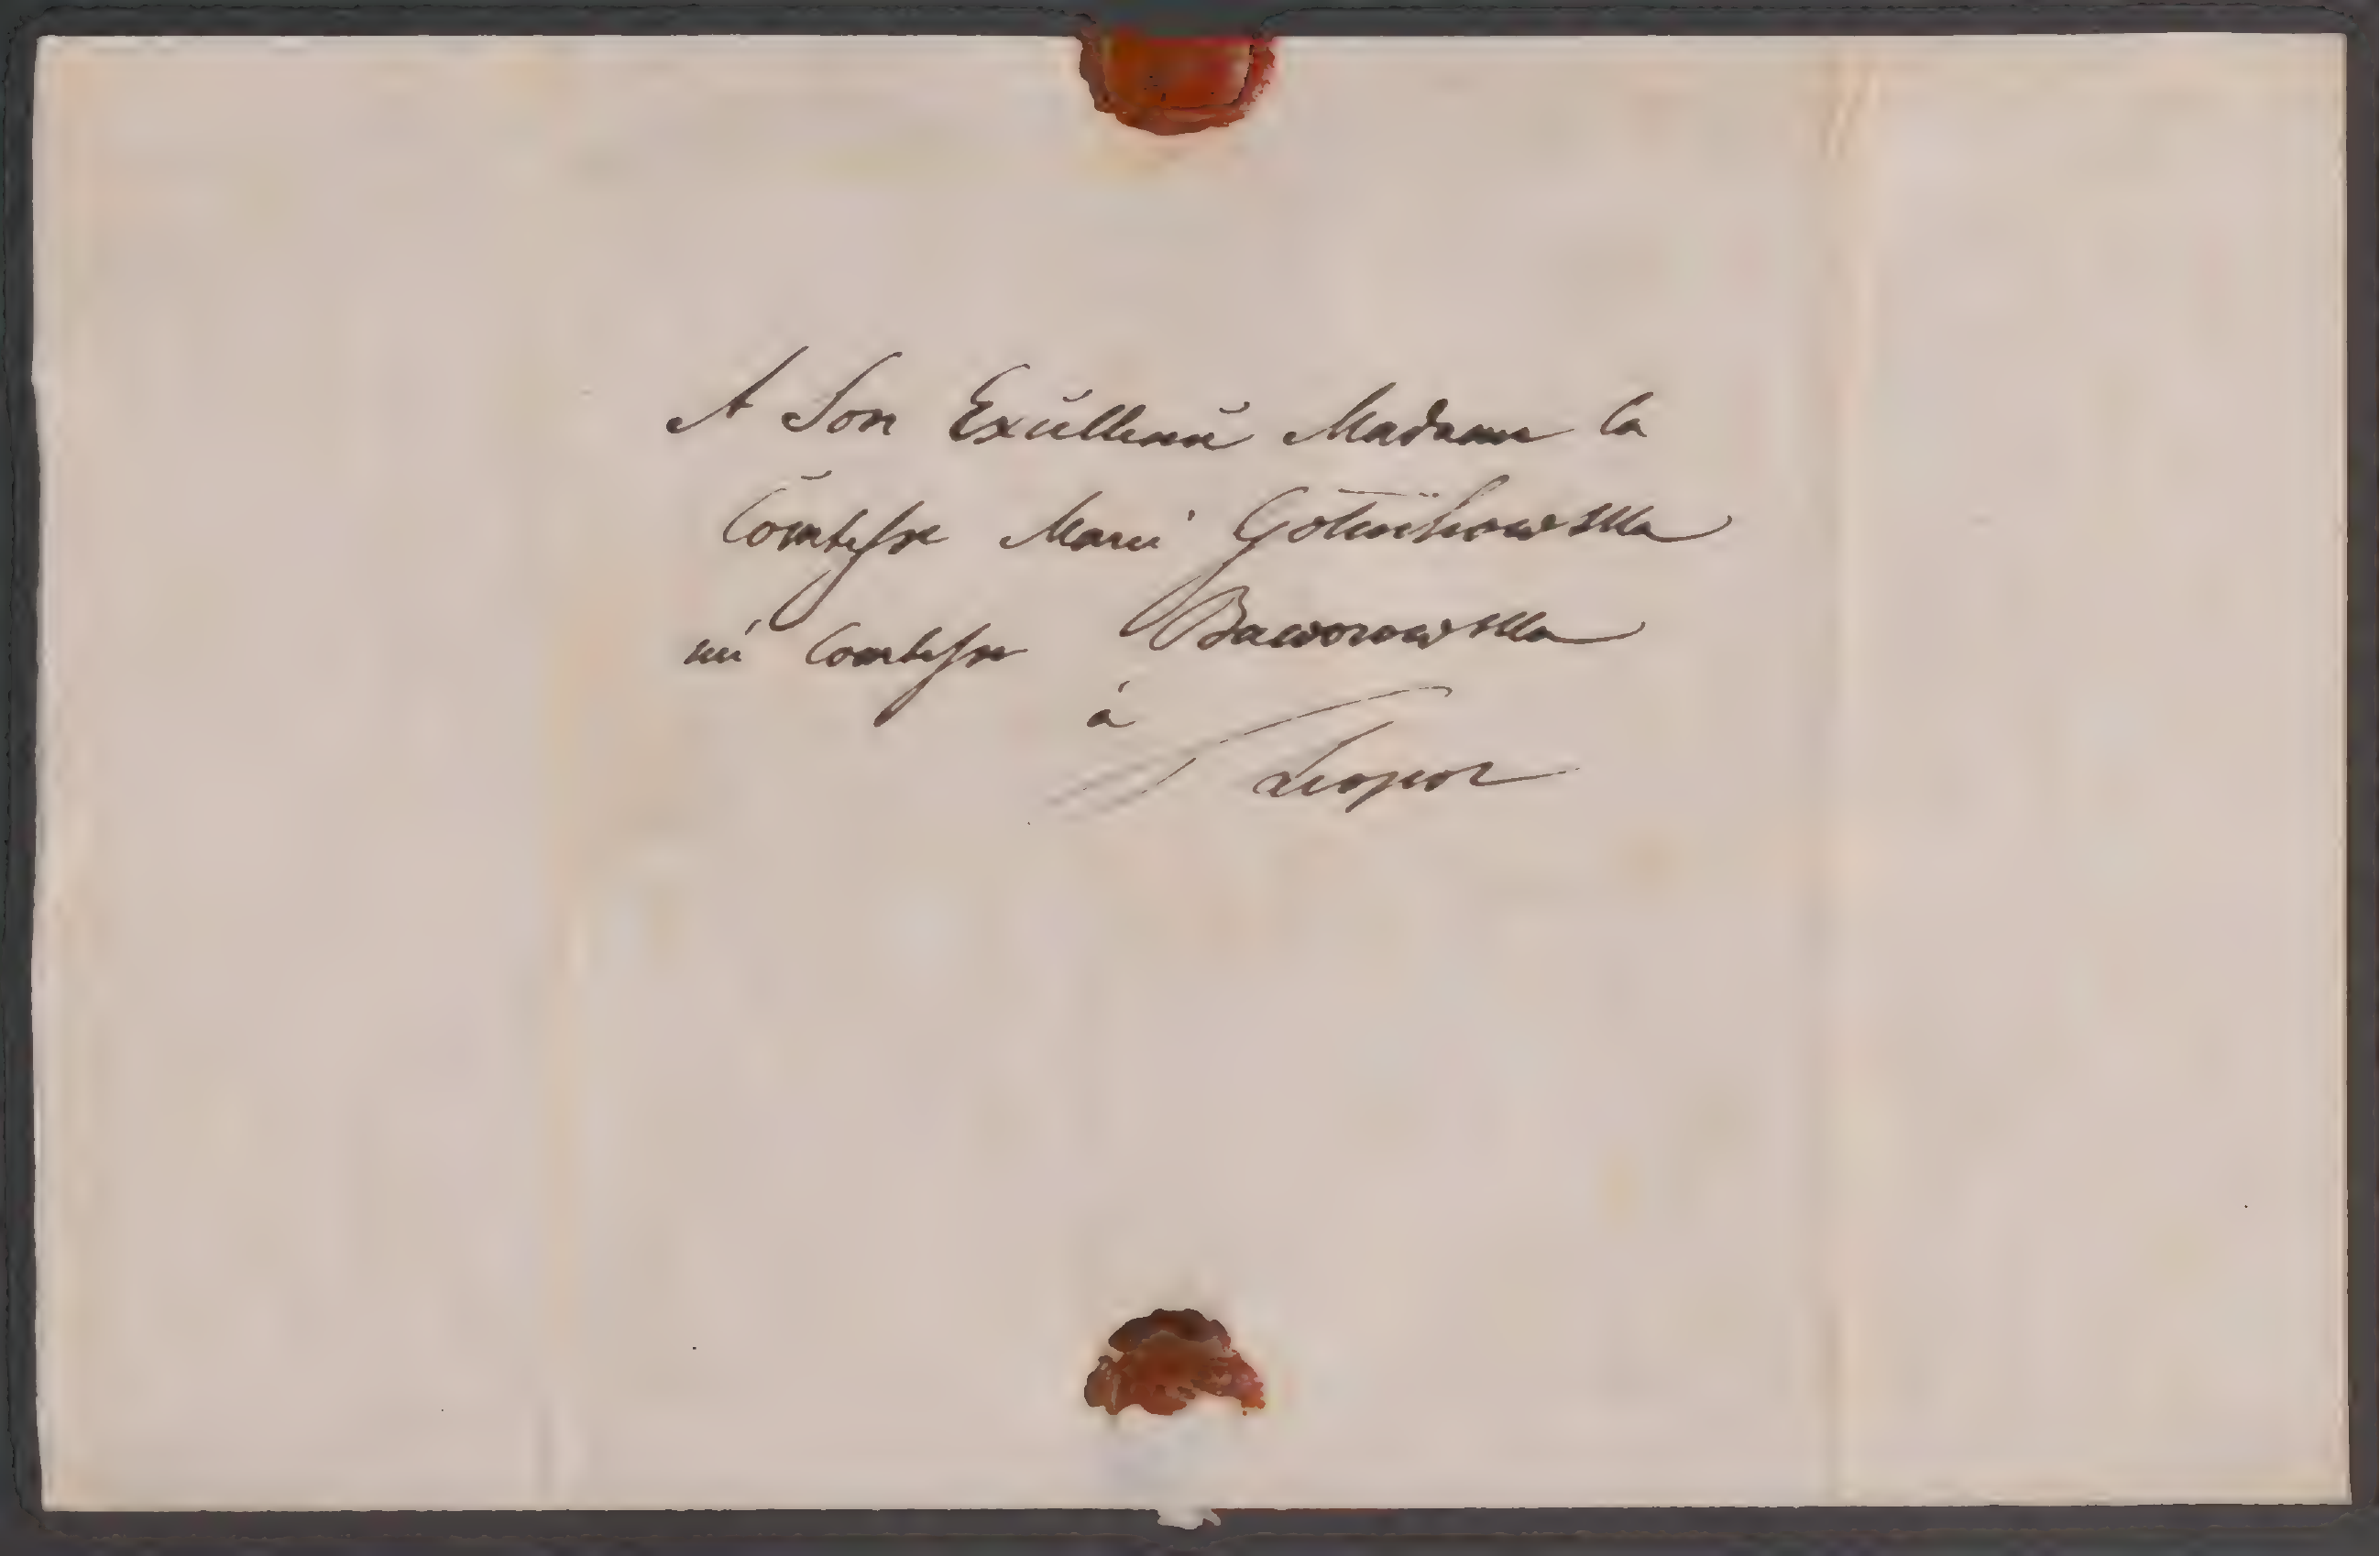 A Son Excellence Madame la
Comtesse Marie Gołuchowska
née Comtesse Baworowska
à